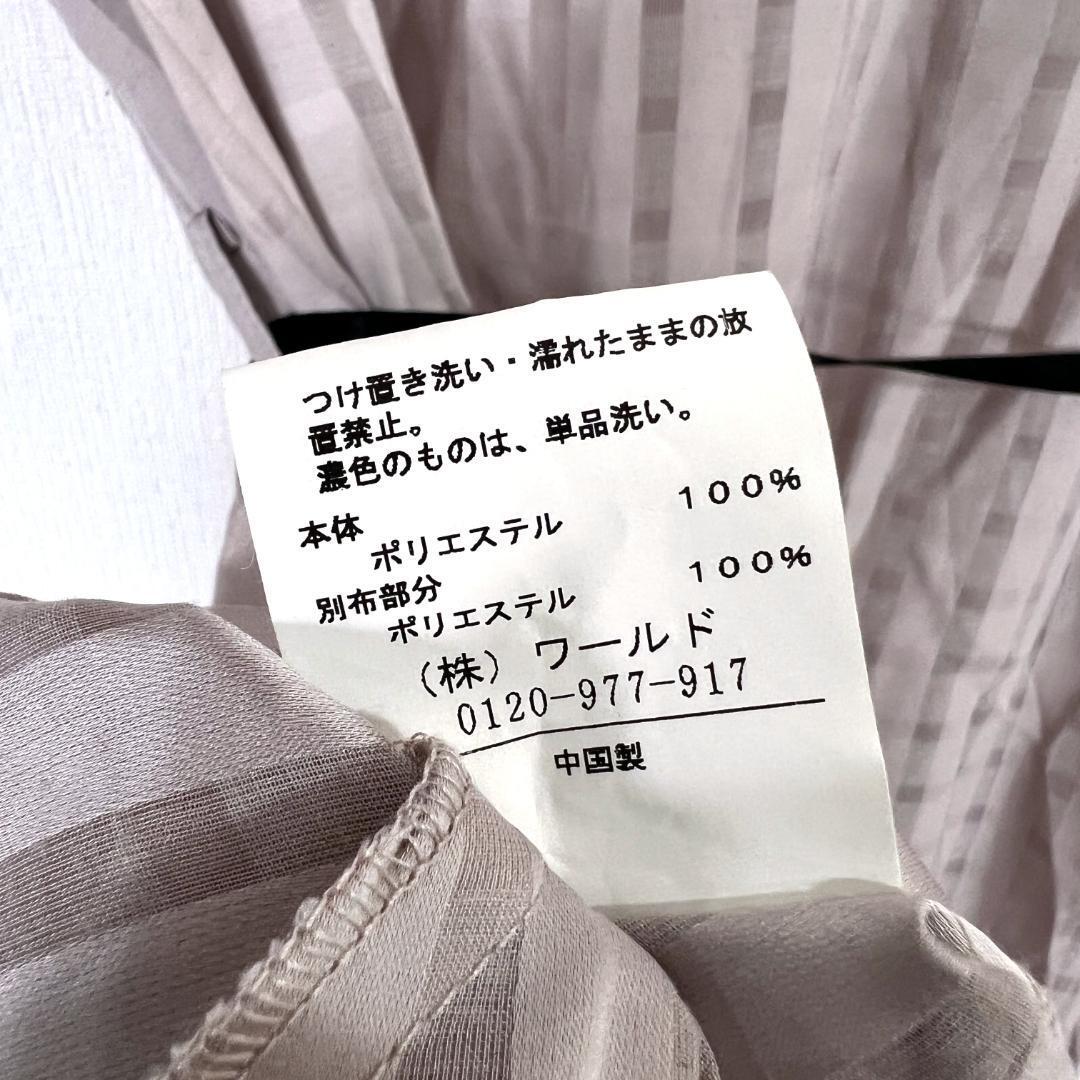 つけ置き洗い・濡れたままの放
置禁止。
濃色のものは、単品洗い。
本体
ポリエステル １００％
別布部分
ポリエステル １００％
（株）ワールド
0120-977-917
中国製